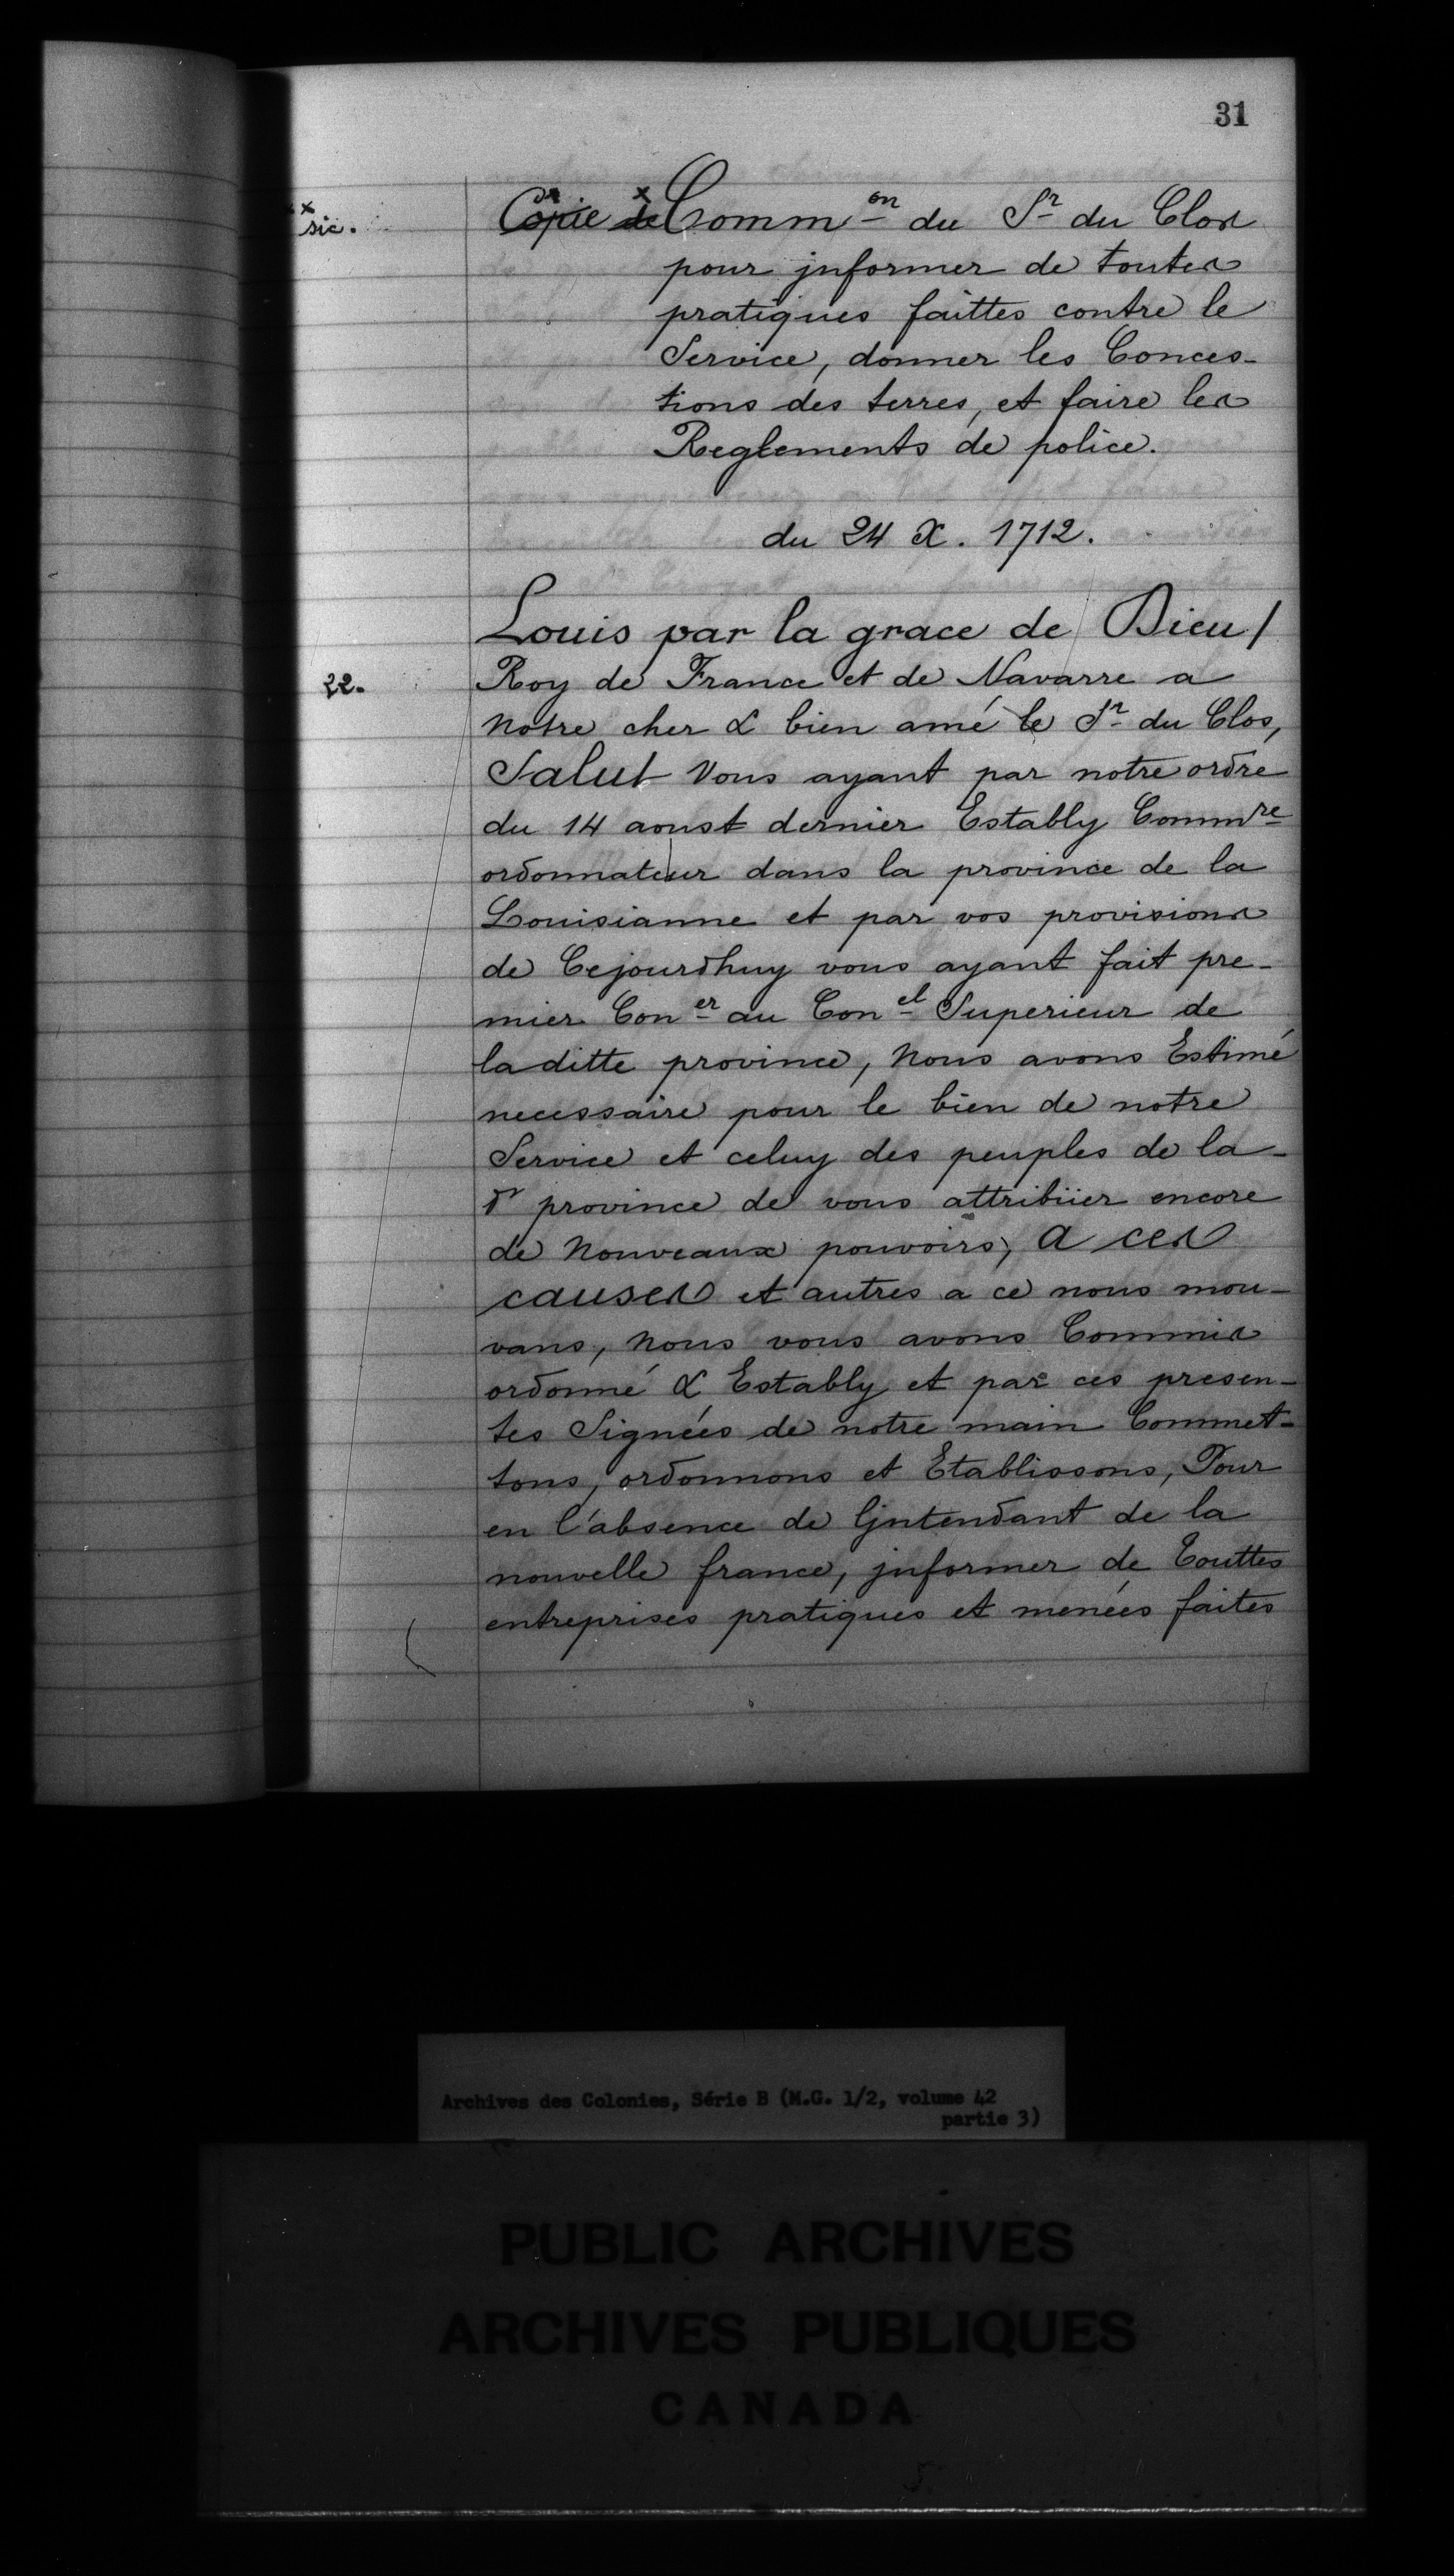 31
x x
sic.
Copie de Comm^on du S^r du Clos
pour jnformer de toutes
pratiques faittes contre le
Service, donner les Conces-
tions des terres, et faire les
Reglements de police.
du 24 X. 1712.
Louis par la grace de Dieu/
22.
Roy de France et de Navarre a
notre cher & bien amé le S^r du Clos,
Salut Vous ayant par notre ordre
du 14 aoust dernier Estably Comm^re
ordonnateur dans la province de la
Louisianne et par vos provisions
de Cejourdhuy vous ayant fait pre-
mier Con^er au Con^el Superieur de
laditte province, Nous avons Estimé
necessaire pour le bien de notre
Service et celuy des peuples de la-
d^e province de vous attribüer encore
de Nouveaux pouvoirs, a ces
causes et autres a ce nous mou-
vans, Nous vous avons Commis
ordonné & Estably et par ces presen-
tes Signées de notre main Commet-
tons, ordonnons et Etablissons, Pour
en l'absence de Ljntendant de la
nouvelle france, jnformer de Touttes
entreprises pratiques et menées faites
Archives des Colonies, Série B (M.G. 1/2, volume 42
partie 3)
PUBLIC ARCHIVES
ARCHIVES PUBLIQUES
CANADA